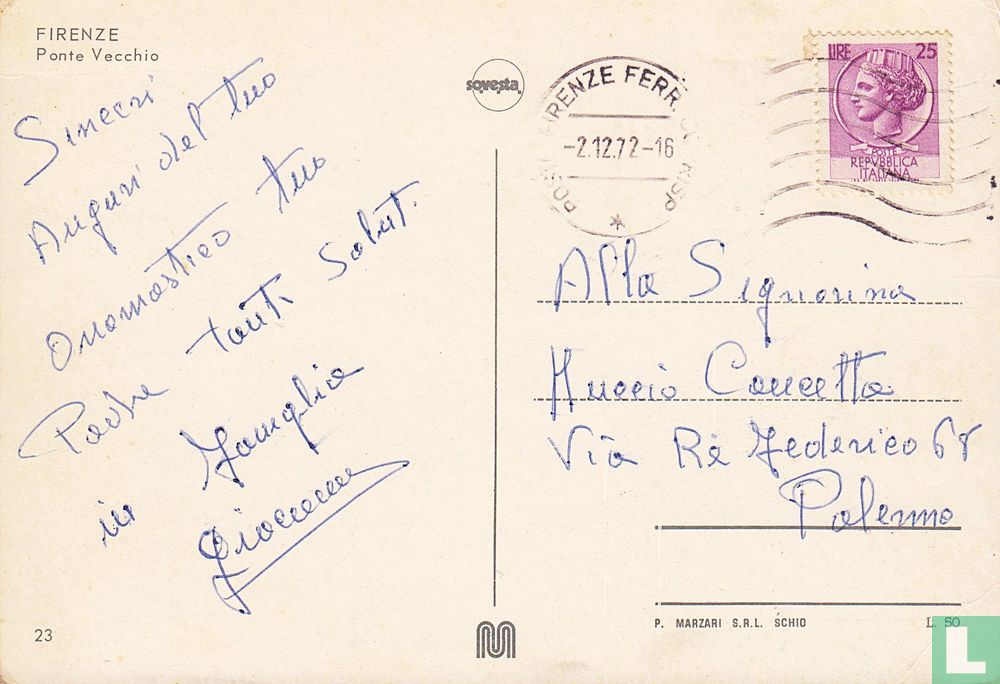 FIRENZE
Ponte Vecchio
Sinceri
Auguri del tuo
Onomastico tuo
Padre tanti Salut.
in Famiglia
sovesta
FIRENZE FERR.
-2.12.72-16
LIRE 25
POSTE
REPVBBLICA
ITALIANA
Alla Signorina
Muccio Concetta
Via Re Federico 68
Palermo
P. MARZARI S.R.L. SCHIO
L. 50
23
M
L